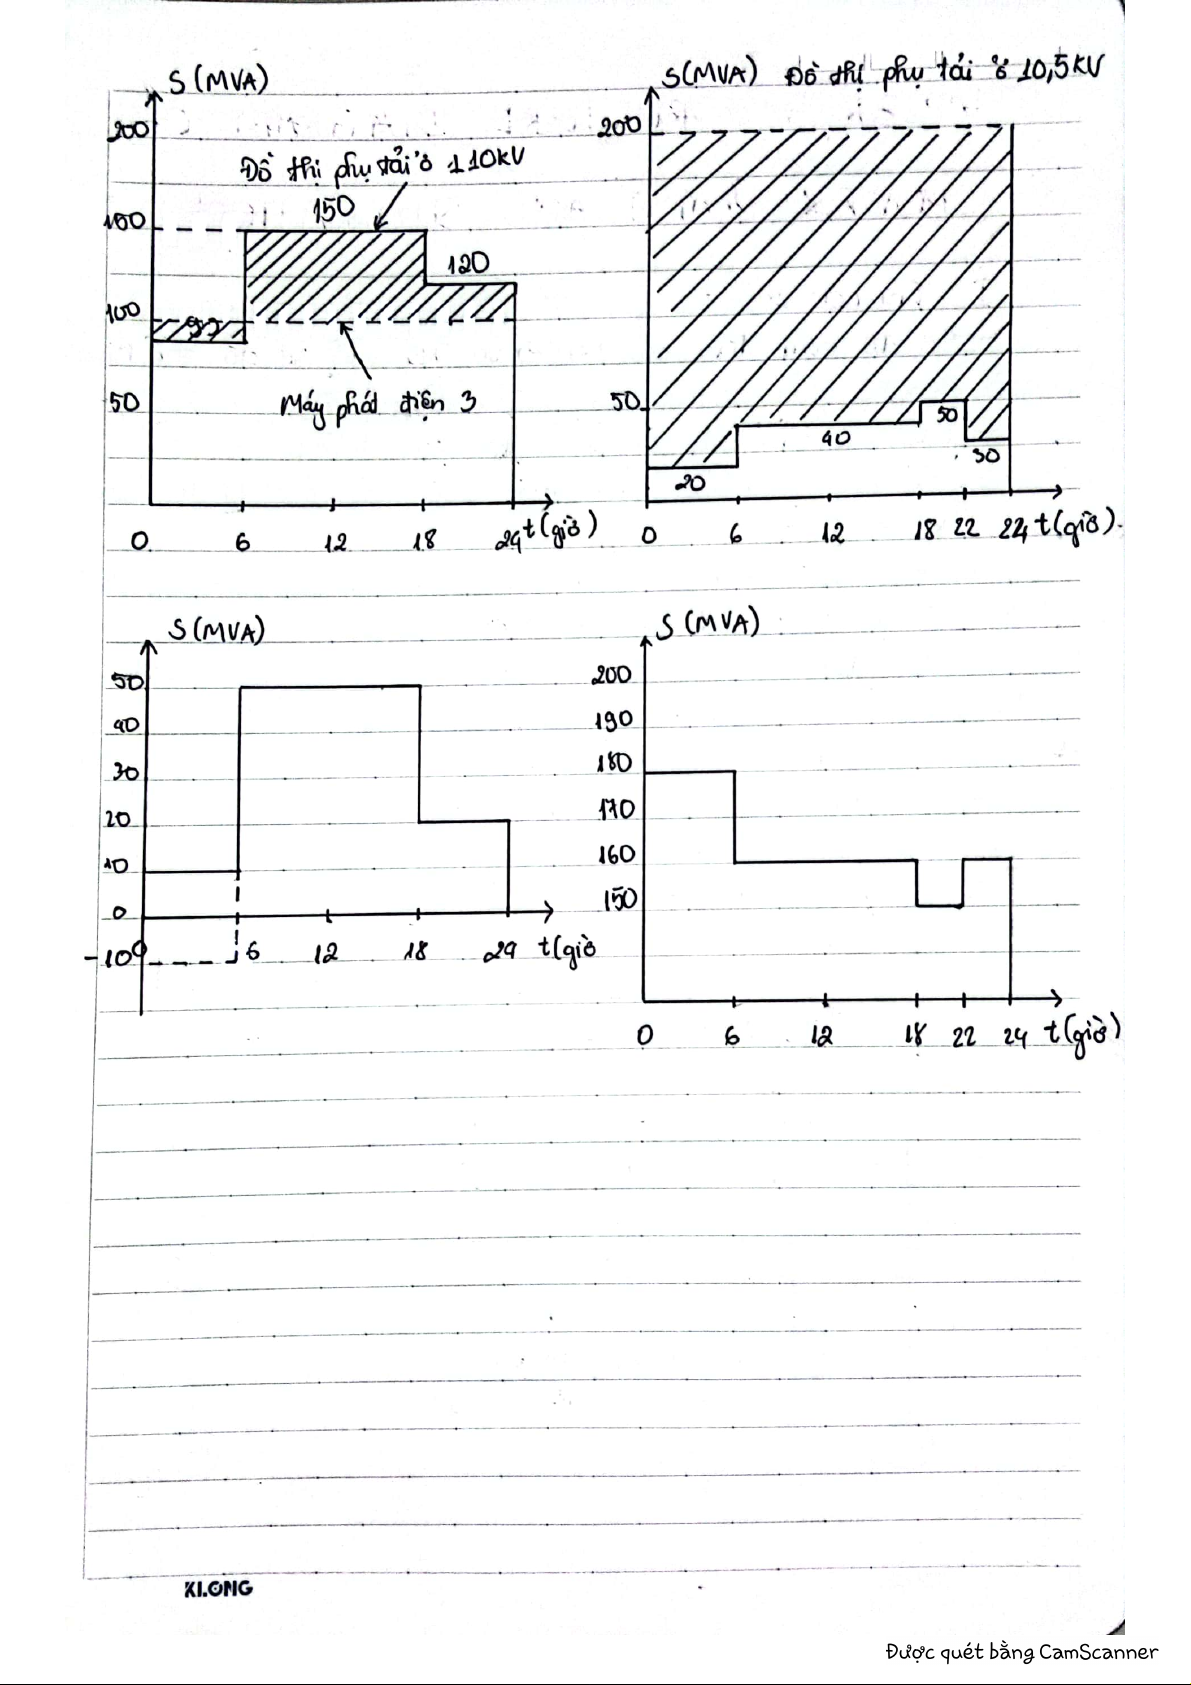 S (MVA)
200
Đồ thị phụ tải ở 110kV
150
100
120
100
50
Máy phát điện 3
0 6 12 18 24 t(giờ)
S(MVA) Đồ thị phụ tải ở 10,5kV
200
50
50
40
30
20
0 6 12 18 22 24 t(giờ)
S (MVA)
50
40
30
20
10
0
-10
0 6 12 18 24 t(giờ
S (MVA)
200
190
180
170
160
150
0 6 12 18 22 24 t(giờ)
KLONG
Được quét bằng CamScanner